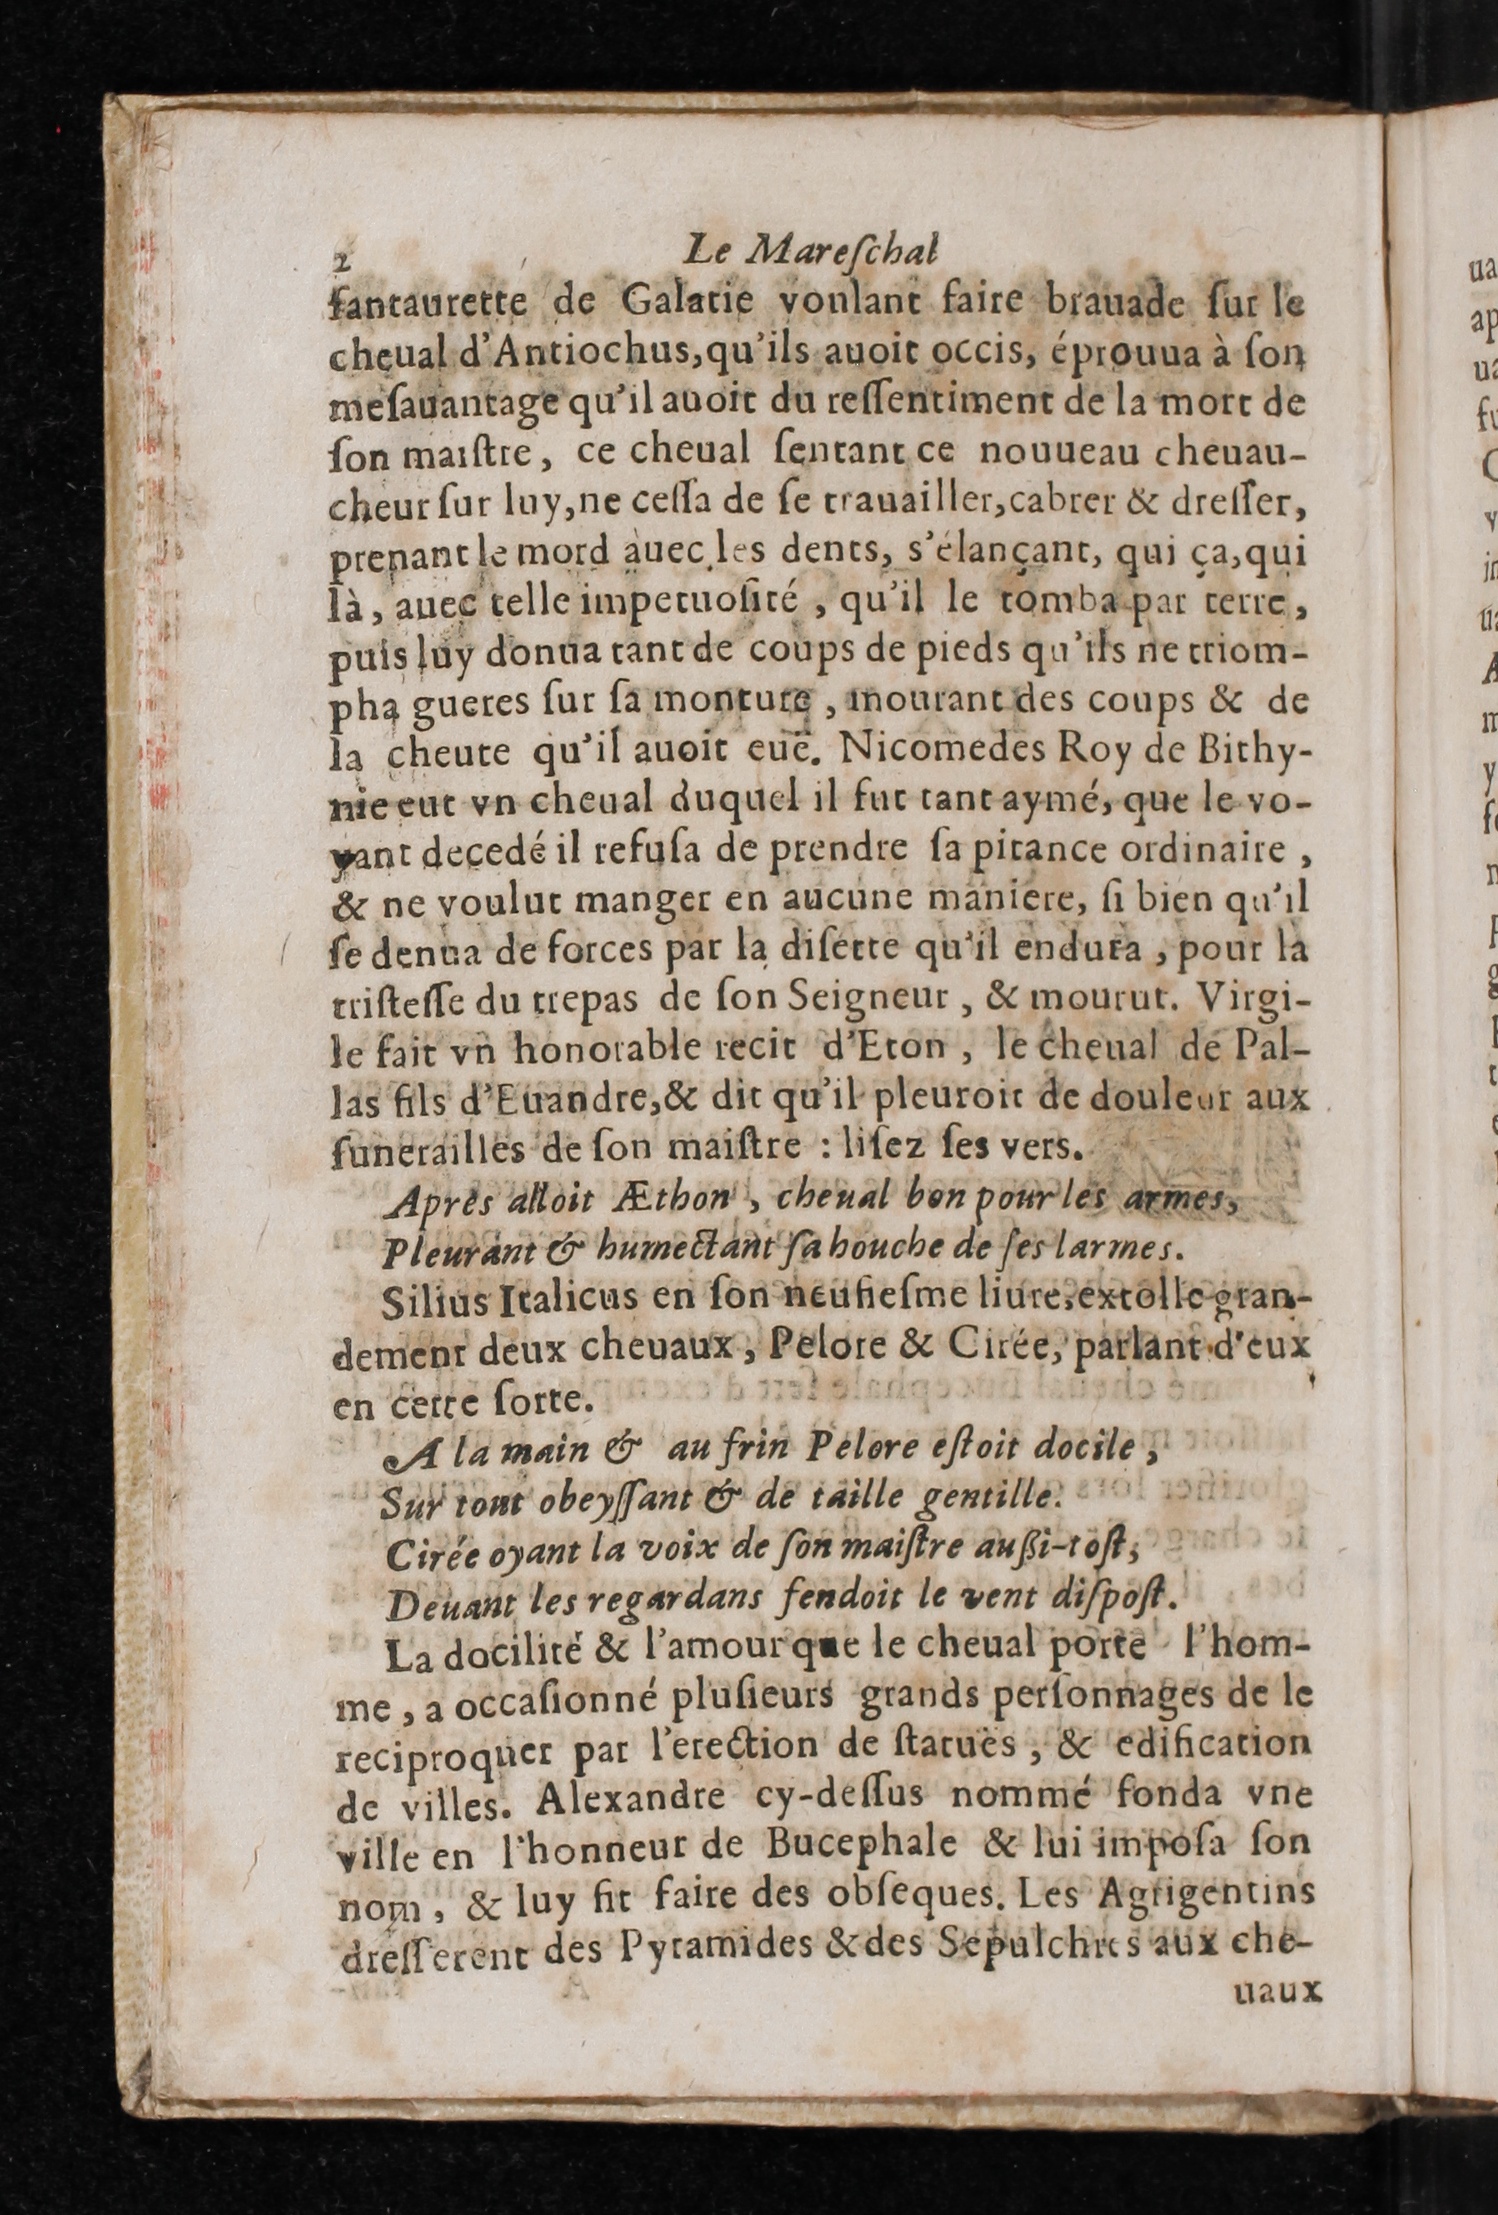 2 Le Mareſchal
fantaurette de Galatie voulant faire brauade ſur le
cheual d'Antiochus,qu'ils auoit occis, éprouua à ſon
meſauantage qu'il auoit du reſſentiment de la mort de
ſon maiſtre, ce cheual ſentant ce nouueau cheuau-
cheur ſur luy,ne ceſſa de ſe trauailler,cabrer & dreſſer,
prenant le mord auec les dents, s'élançant, qui ça,qui
là, auec telle impetuoſité, qu'il le tomba par terre,
puis luy donna tant de coups de pieds qu'ils ne triom-
pha gueres ſur ſa monture, mourant des coups & de
la cheute qu'il auoit euë. Nicomedes Roy de Bithy-
nie eut vn cheual duquel il fut tant aymé, que le vo-
yant decedé il refuſa de prendre ſa pitance ordinaire,
& ne voulut manger en aucune maniere, ſi bien qu'il
ſe denua de forces par la diſette qu'il endura, pour la
triſteſſe du trepas de ſon Seigneur, & mourut. Virgi-
le fait vn honorable recit d'Eton, le cheual de Pal-
las fils d'Euandre,& dit qu'il pleuroit de douleur aux
funerailles de ſon maiſtre : liſez ſes vers.
Après alloit Æthon, cheual bon pour les armes,
Pleurant & humectant ſa bouche de ſes larmes.
Silius Italicus en ſon neufieſme liure,extolle gran-
dement deux cheuaux, Pelore & Cirée, parlant d'eux
en cette ſorte.
A la main & au frin Pelore eſtoit docile,
Sur tout obeyſſant & de taille gentille.
Cirée oyant la voix de ſon maiſtre außi-toſt,
Deuant les regardans fendoit le vent diſpoſt.
La docilité & l'amour que le cheual porte l'hom-
me, a occaſionné pluſieurs grands perſonnages de le
reciproquer par l'erection de ſtatuës, & edification
de villes. Alexandre cy-deſſus nommé fonda vne
ville en l'honneur de Bucephale & lui impoſa ſon
nom, & luy fit faire des obſeques. Les Agrigentins
dreſſerent des Pyramides & des Sepulchres aux che-
uaux